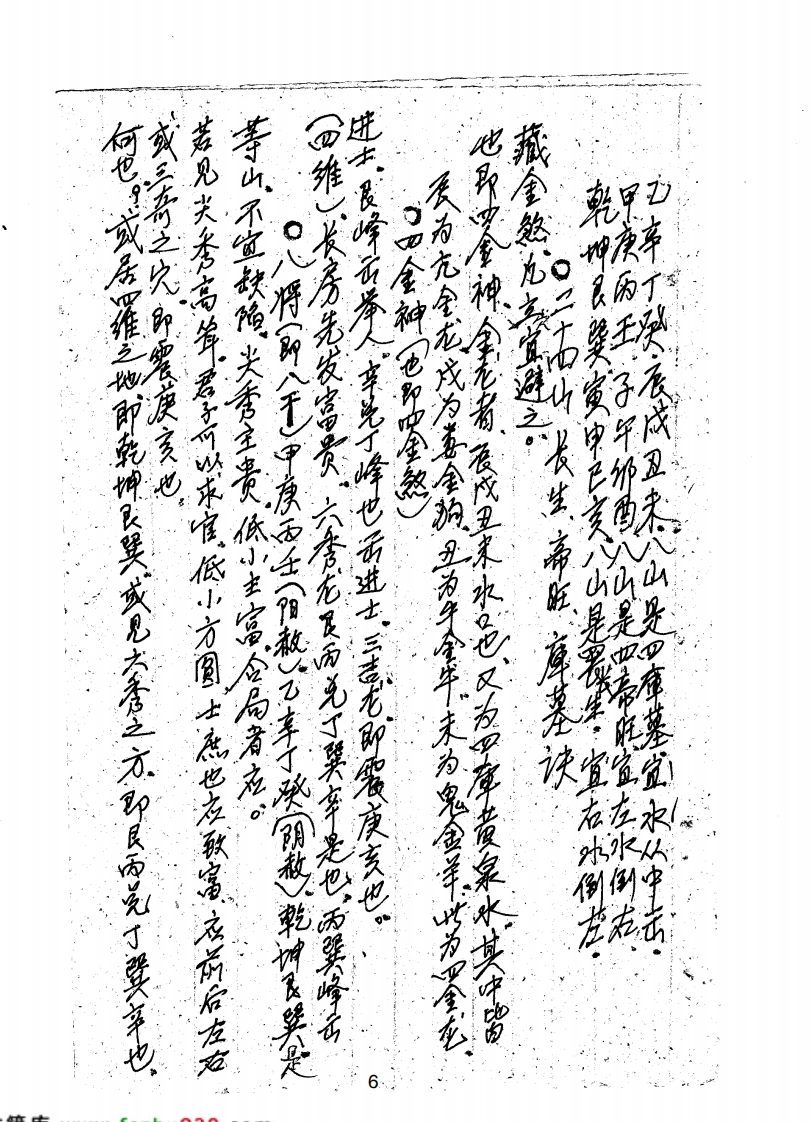 乙辛丁癸、辰戌丑未、八山是四庫墓、宜水从中出。
甲庚丙壬、子午卯酉八山是四帝旺、宜左水倒右、
乾坤艮巽、寅申巳亥、八山是長生。宜右水倒左。
○二十四山、长生、帝旺、庫墓诀
藏金煞、凡立宜避之。
也即四金神、金龙者、辰戌丑未水口也、又为四庫黄泉水、其中皆
辰为亢金龙、戌为娄金狗、丑为牛金牛、未为鬼金羊、此为四金龙、
○四金神（也即四金煞）
进士、艮峰出举人。辛兑丁峰也出进士、三吉龙即震庚亥也。
（四维）、长房先发富贵、六秀龙艮丙兑丁巽辛是也、丙巽峰出
○八将（即八干）甲庚丙壬（阳赦）、乙辛丁癸（阴赦）、乾坤艮巽是
等山、不宜缺陷、尖秀主贵、低小主富、合局者应。
若见尖秀高耸、君子可以求官、低小方圆、士庶也应致富、应前后左右
或三奇之穴、即震庚亥也、
何也？或居四维之地即乾坤艮巽、或见六秀之方、即艮丙兑丁巽辛也。
6